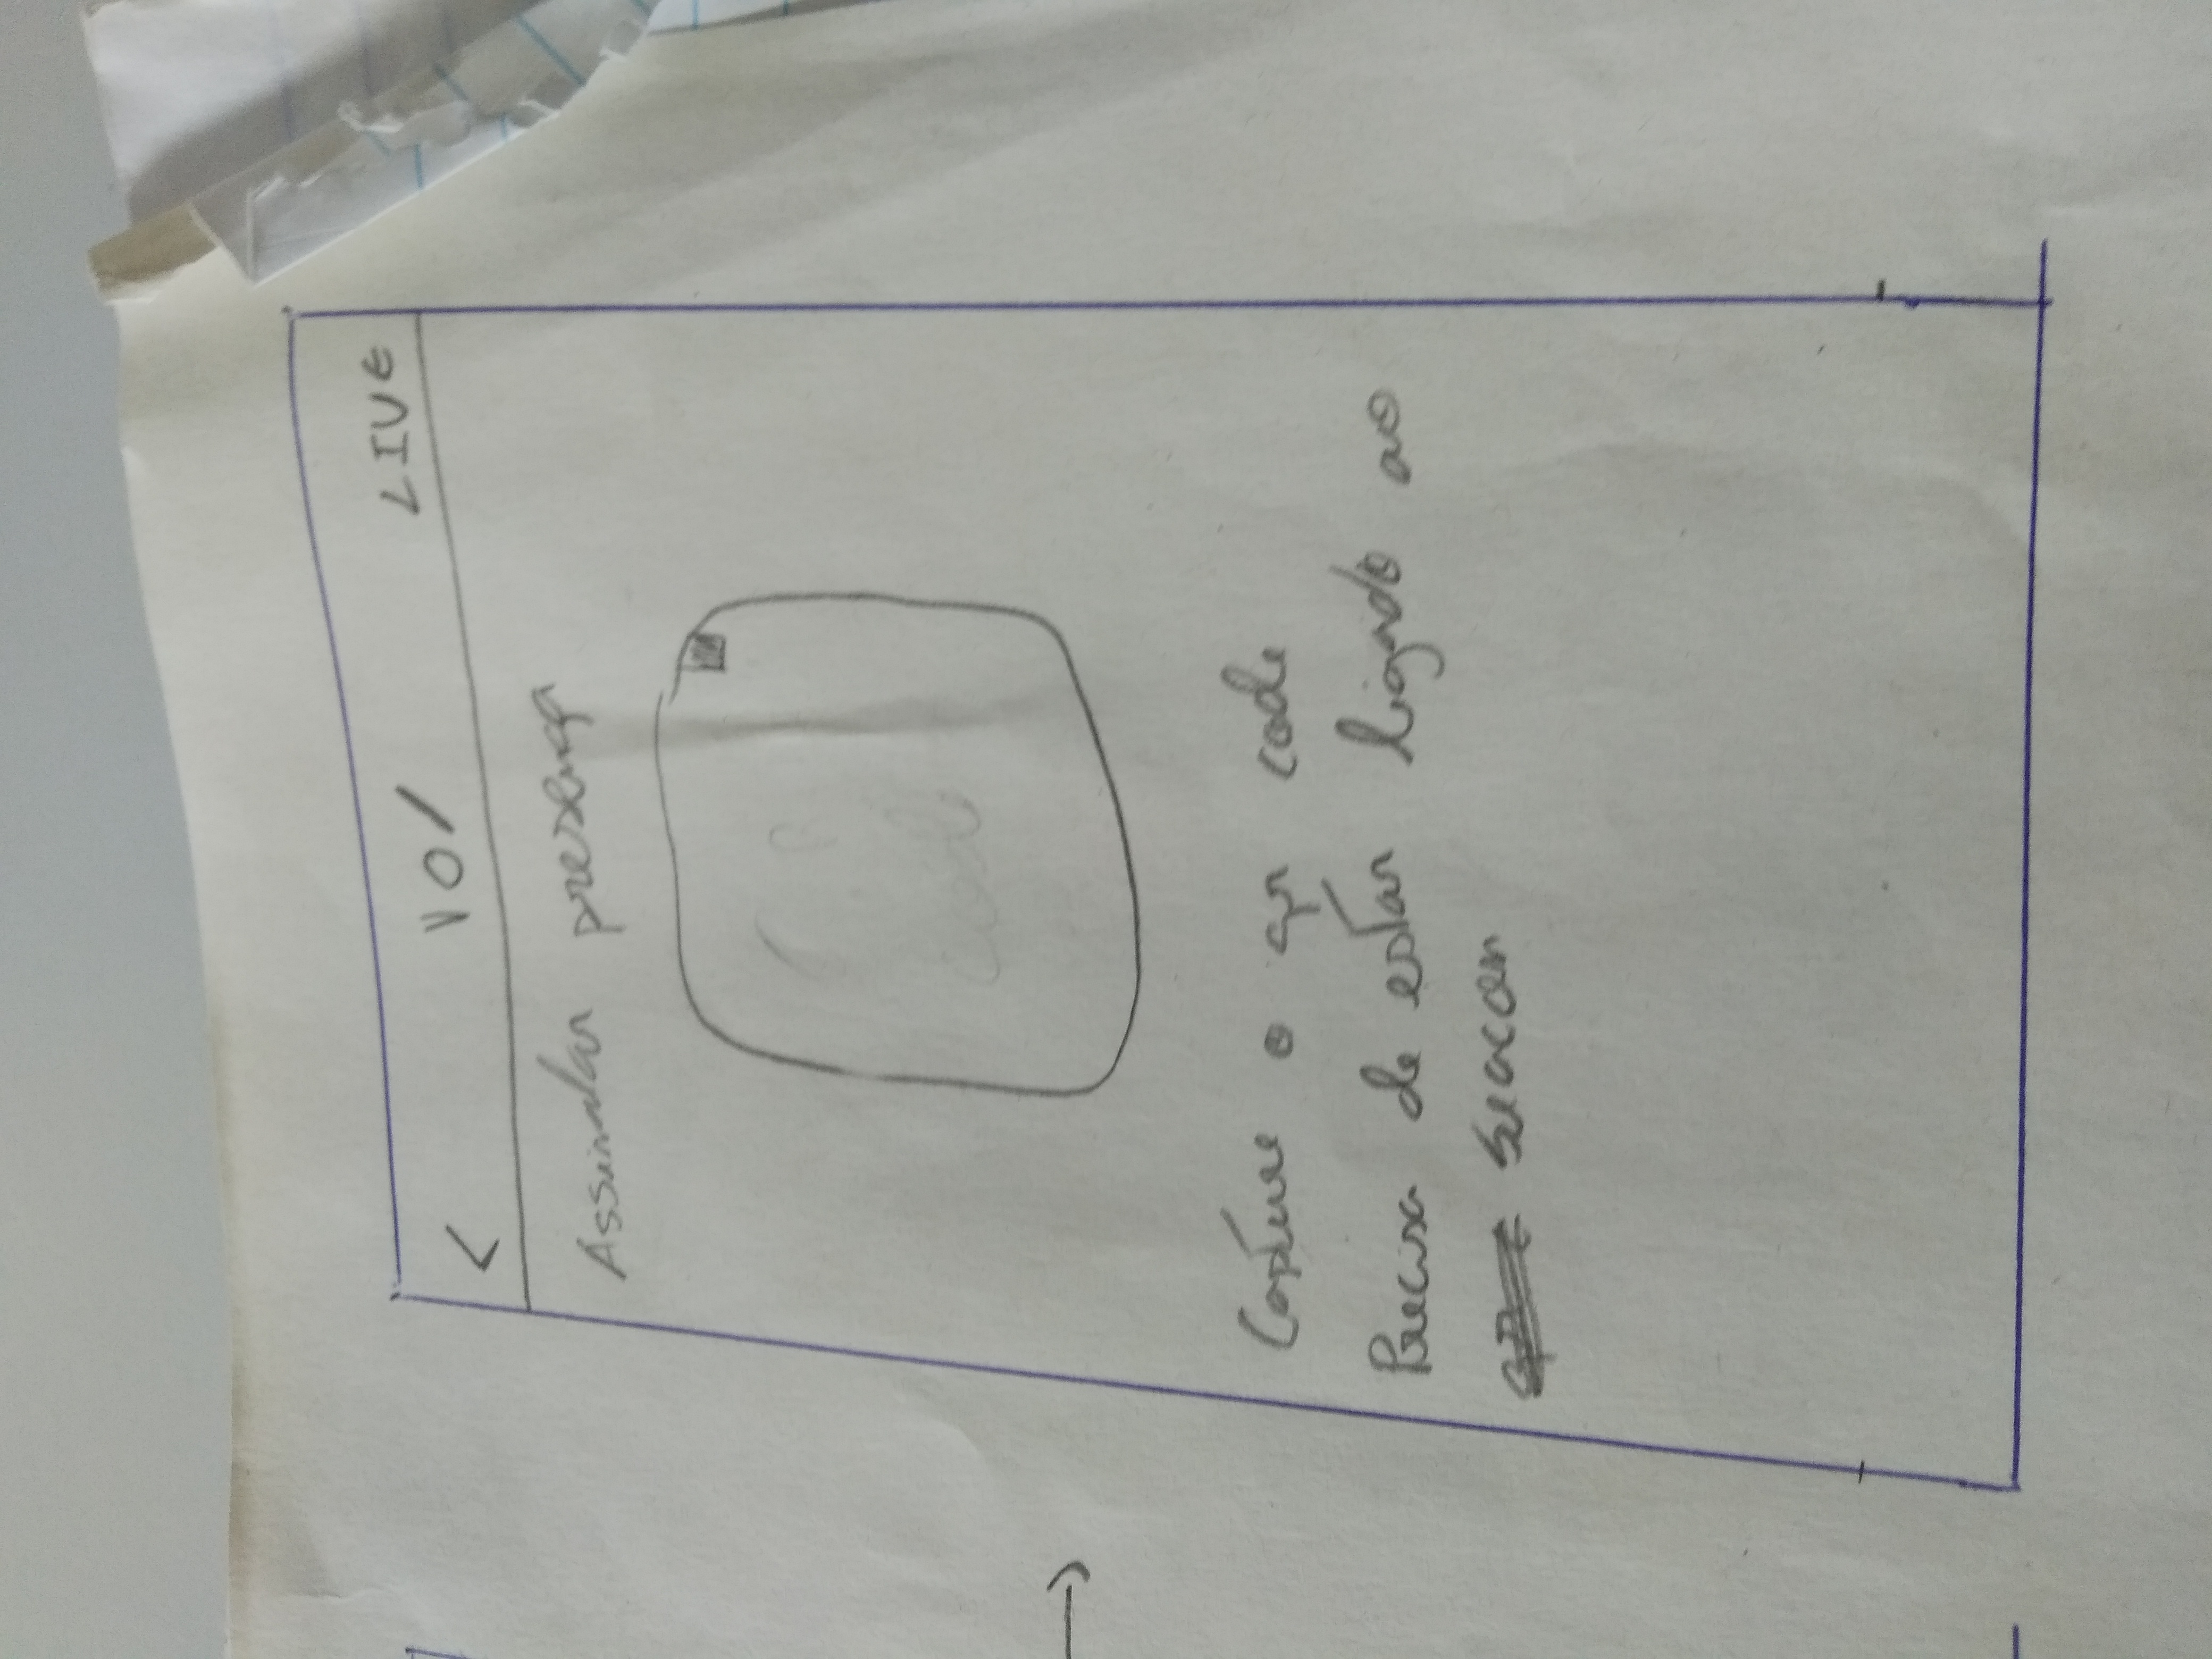 < LIVE
Assinalar presença
Capture o qr code
Precisa de estar ligado ao
beacon